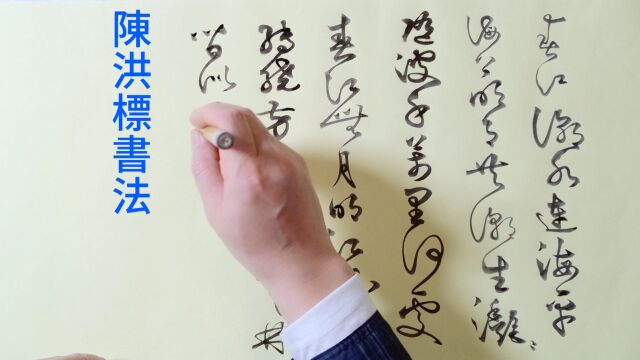 春江潮水連海平
海上明月共潮生灩〻
隨波千萬里何處
春江無月明江
轉繞芳
皆似
陳洪標書法